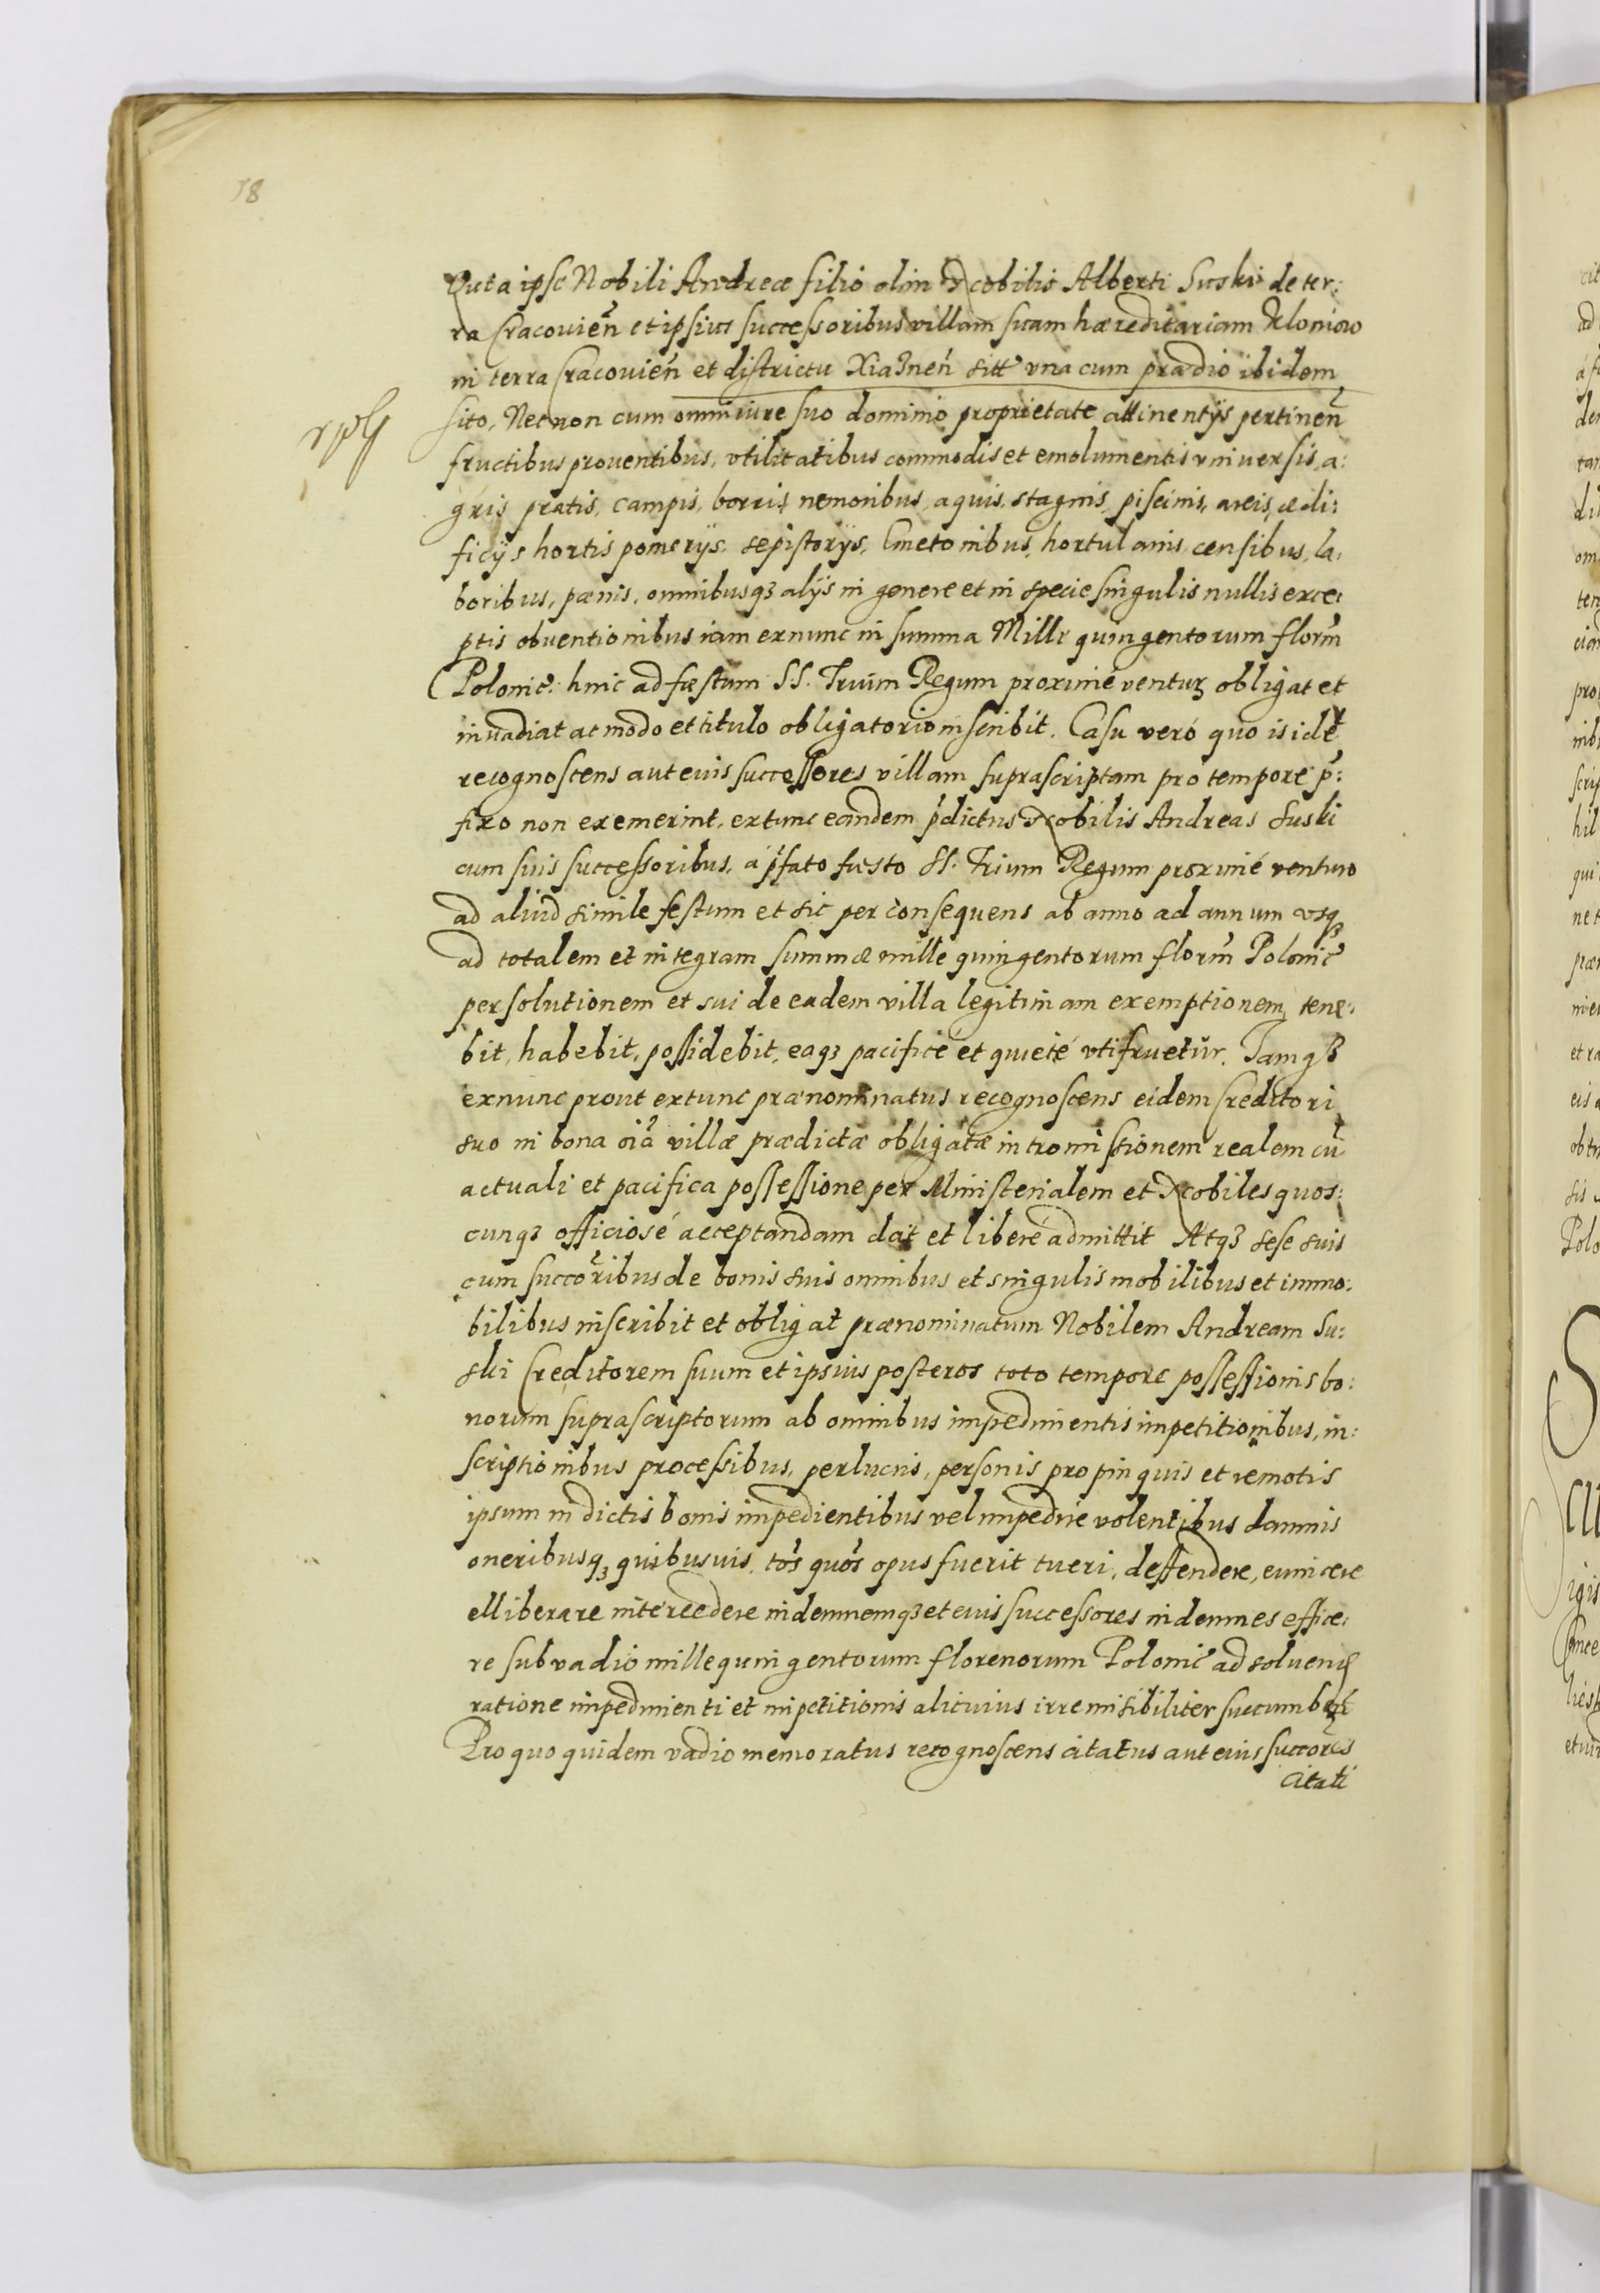 18
Quia ipse Nobili Andreæ filio olim Nobilis Alberti Suski de ter:
ra Cracouien̄ et ipsius successoribus villam suam hæreditariam Kloniow
in terra Cracouien̄ et districtu Xiaznen̄ sitt̄ vna cum prædio ibidem
sito, Necnon cum omni iure suo dominio proprietate attinentijs pertinen̄
fructibus prouentibus, vtilitatibus commodis et emolumentis vniuersis, a:
gris pratis, campis, borris, nemoribus, aquis, stagnis, piscinis, areis, ædi:
ficijs hortis pomerijs, sepistorijs, Cmetonibus, hortulanis, censibus, la:
boribus, pænis, omnibusq3 alijs in genere et in specie singulis nullis exce:
ptis obuentionibus iam exnunc in summa Mille quingentorum florm̄
Polonic̄: hinc ad fæstum SS. Trium Regum proximè ventur3 obligat et
inuadiat ac modo et titulo obligatorio inscribit. Casu verò quo is idē
recognoscens aut eius successores villam suprascriptam pro tempore p̄:
fixo non exemerint, extunc eandem p̄dictus Nobilis Andreas Suski
cum suis successoribus, à p̄fato fæsto SS. Trium Regum proximè venturo
ad aliud simile festum et sic per consequens ab anno ad annum vsq3
ad totalem et integram summæ mille quingentorum florm̄ Polonic̄
persolutionem et sui de eadem villa legitimam exemptionem, tene:
bit, habebit, possidebit, eaq3 pacificè et quietè vtifruetūr. Iamq3
exnunc prout extunc prænominatus recognoscens eidem Creditori
suo in bona oīa villæ prædictæ obligatæ intromissionem realem cū
actuali et pacifica possessione per Ministerialem et Nobiles quos:
cunq3 officiosè acceptandam dat et liberè admittit Atq3 sese suis
cum succōribus de bonis suis omnibus et singulis mobilibus et immo:
bilibus inscribit et obligat prænominatum Nobilem Andream Su:
ski Creditorem suum et ipsius posteros toto tempore possessionis bo:
norum suprascriptorum ab omnibus impedimentis impetitionibus, in:
scriptionibus processibus, perlucris, personis propinquis et remotis
ipsum in dictis bonis impedientibus vel impedire volentibus damnis
oneribusq3 quibusuis, tōs quōs opus fuerit tueri, deffendere, euincere
elliberare intercedere indemnemq3 et eius successores indemnes effice:
re sub vadio mille quingentorum florenorum Polonic̄ ad soluend̄
ratione impedimenti et impetitionis alicuius irremisibiliter succumben̄
Pro quo quidem vadio memoratus recognoscens citatus aut eius succōres
citati